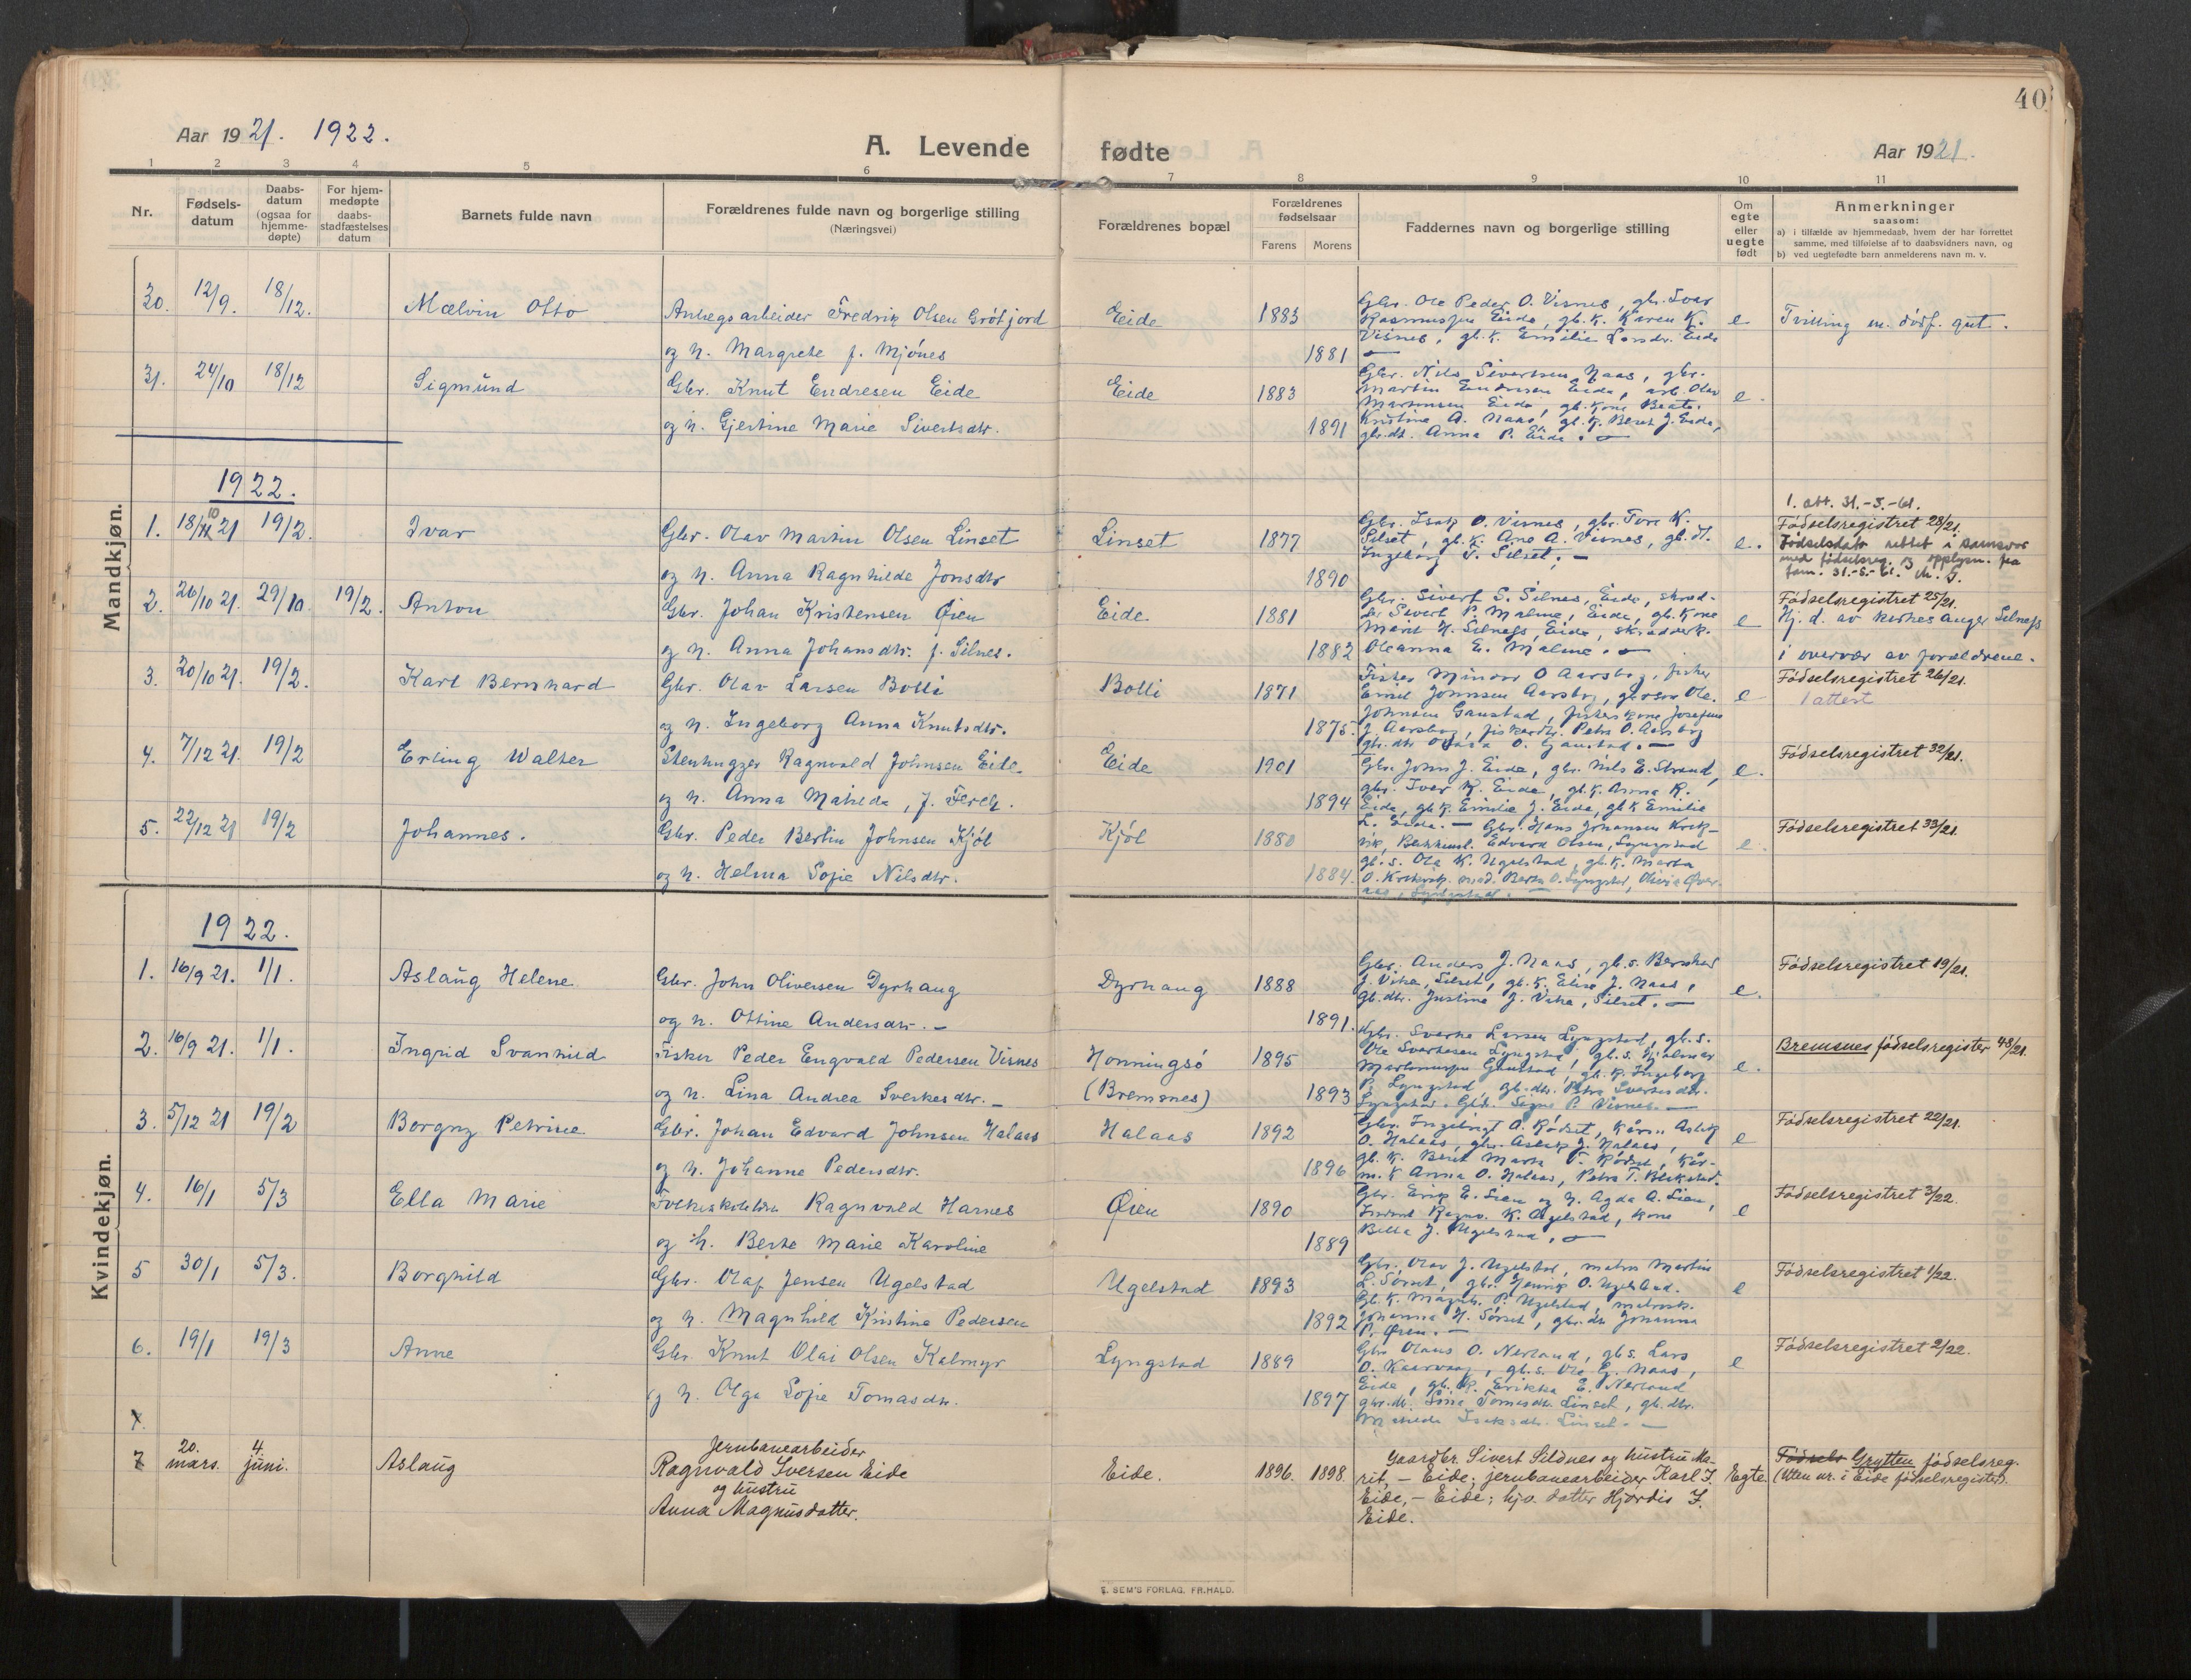 40
Aar 1921. 1922.
A. Levende fødte
Aar 1921.
1 2 3 4 5 6 7 8 9 10 11
Nr.
Fødsels-
datum
Daabs-
datum
(ogsaa for
hjemme-
døpte)
For hjem-
medøpte
daabs-
stadfæstelses
datum
Barnets fulde navn
Forældrenes fulde navn og borgerlige stilling
(Næringsvei)
Forældrenes bopæl
Forældrenes
fødselsaar
Farens Morens
Faddernes navn og borgerlige stilling
Om
egte
eller
uegte
født
Anmerkninger
saasom:
a) i tilfælde av hjemmedaab, hvem der har forrettet
samme, med tilføielse af to daabsvidners navn, og
b) ved uegtefødte barn anmelderens navn m. v.
Mandkjøn.
30. 12/9. 18/12. Mælvin Otto
Anlegsarbeider Fredrik Olsen Grötfjord
og h. Margrete f. Mjönes
Eide 1883
1881
Gbr. Ole Peder O. Visnes, gbr. Ivar
Rasmussen Eide, gb.k. Karen K.
Visnes, gb.k. Emilie Eide
e
Tvilling m. dödf. gut.
31. 24/10 18/12 Sigmund
Gbr. Knut Endresen Eide
og h. Gjertine Marie Sivertsdtr.
Eide 1883
1891
Gbr. Nils Sivertsen Naas, gbr.
Martin Endresen Eide, arb. Olav
Martinsen Eide, gb.kone Beate
Kristine A. Naas, gb.k. Beret J. Eide,
gb.dt. Anna P. Eide. —
e.
1922.
1. 18/10 21 19/2. Ivar
Gbr. Olav Martin Olsen Linset
og h. Anna Ragnhilde Jonsdtr
Linset 1877
1890
Gbr. Isak O. Visnes, gbr. Tore K.
Silset, gb.k. Ane A. Visnes, gb.k.
Ingeborg T. Silset, —
e.
1. att. 31.-5.-61.
Födselsregistret 28/21.
Fødselsdato rettet i samsvar
med fødselsreg. og opplysn. fra
fam. 31.-5.-61.
2. 26/10 21. 29/10. 19/2. Anton
Gbr. Johan Kristensen Øien
og h. Anna Johansdtr. f. Silnes.
Eide. 1881
1882
Gbr. Sivert S. Silnes, Eide, skred-
der Sivert P. Malme, Eide, gb.kone
Marit H. Silness, Eide, skredderk.
Oleanna E. Malme. —
e
Födselsregistret 25/21.
Hj.d. av kirkesanger Silness
i overvær av forældrene.
3. 20/10 21. 19/2. Karl Bernhard
Gbr. Olav Larsen Bolli
og h. Ingeborg Anna Knutsdtr.
Bolli 1871
1875.
Fisker Mindor O Aarsbog, fisker
Emil Johnsen Aarsbog, Ole
Johnsen Gaustad, fiskerkone Josefine
J. Aarsbog, Petra O. Aarsbog
gbr.dtr O. Gaustad. —
e
Födselsregistret 26/21.
1 attest
4. 7/12 21. 19/2 Erling Walter
Stenhugger Ragnvald Johnsen Eide.
og h. Anna Matilda, f.
Eide 1901
1894
Gbr. John J. Eide, gbr. Nils E. Strand,
gbr. Iver K. Eide, gb.k. Anna K.
Eide, gb.k. Emilie J. Eide, gb.k. Emilie
L. Eide. —
e.
Födselsregistret 32/21.
5. 22/12 21 19/2 Johannes.
Gbr. Peder Bertin Johnsen Kjöl
og h. Helma Sofie Nilsdtr.
Kjöl 1880
1884.
Gbr. Hans Johansen
Edvard Olsen, Lyngstad
gb.s. Ole K. Ugelstad, gb.k. Marta
O. Berta O. Lyngstad, Olivie Över-
aas, Lyngstad. —
e.
Födselsregistret 33/21.
Kvindekjøn.
1922.
1. 16/9 21. 1/1. Aslaug Helene
Gbr. John Oliversen Dyrhaug
og h. Ottine Andersdtr. —
Dyrhaug 1888
1891.
Gbr. Anders J. Naas, gb.s. Bernhard
J. Vike, Silset, gb.k. Elise J. Naas,
gb.dtr. Justine J. Vike, Silset. —
e.
Födselsregistret 19/21.
2. 16/9 21. 1/1. Ingrid Svanhild
Fisker Peder Engvald Pedersen Visnes
og h. Lina Andrea Sverkesdtr. —
Honningsö
(Bremsnes)
1895
1893
Gbr. Sverke Larsen Lyngstad, gb.s.
Ole Sverkesen Lyngstad, gb.s. Hjalmar
Martinussen Gaustad, gb.k. Ingeborg
P. Lyngstad, gb.dtr. Petra Sverkesdtr.
Lyngstad. Gbd. Signe P. Visnes. —
e.
Bremsnes födselsregister 48/21.
3. 5/12 21 19/2 Borgny Petrine
Gbr. Johan Edvard Johnsen Halaas
og h. Johanne Pedersdtr.
Halaas 1892
1896
Gbr. Ingebrigt A. Rödset, kårm. Aslak
O. Halaas, gbr. Aslak J. Halaas,
gb.k. Beret Marta T. Rödset, kår-
m.k. Anna O. Halaas, Petra T. Blikstad.
e
Födselsregistret 22/21.
4. 16/1 5/3 Ella Marie
Ragnvald Harnes
og h. Berte Marie Karoline
Øien 1890
1889
Gbr. Erik E. Lien og h. Agda A. Lien,
Ragnv. K. Ugelstad, kone
Bella J. Ugelstad, —
e
Födselsregistret 3/22.
5 30/1 5/3. Borghild
Gbr. Olaf Jensen Ugelstad
og h. Magnhild Kristine Pedersen
Ugelstad 1893
1892
Gbr. Olav J. Ugelstad, maler Martin
L. Sörset, gbr. Henrik O. Ugelstad.
Gb.k. P. Ugelstad, malersk.
Johanna H. Sörset, gbr.dtr Johanna
P. Øien. —
e
Födselsregistret 1/22.
6. 19/1 19/3 Anne
Gbr. Knut Olai Olsen Kalmyr
og h. Olga Sofie Tomasdtr.
Lyngstad 1889
1897
Gbr Olaus O. Nerland, gb.s. Lars
O. Kaarvaag, gb.s. Ole G. Naas,
Eide, gb.k. Erikka E. Nerland
gbr.dt. Lina Tomasdtr Linset, gb.dtr.
Matilde Isaksdtr. Linset. —
e
Födselsregistret 2/22.
7.
7 20. mars. 4. juni. Aslaug
Jernbanearbeider
Ragnvald Iversen Eide
og hustru
Anna Magnusdatter.
Eide. 1896. 1898.
Gaardbr. Sivert Sildnes og hustru Ma-
rit, — Eide; jernbanearbeider Karl I.
Eide, — Eide; hjv. datter Hjördis I.
Eide.
Egte.
Födsels Grytten födselsreg.
(Uten nr. i Eide födselsregister).
E. SEM'S FORLAG, FR.HALD.